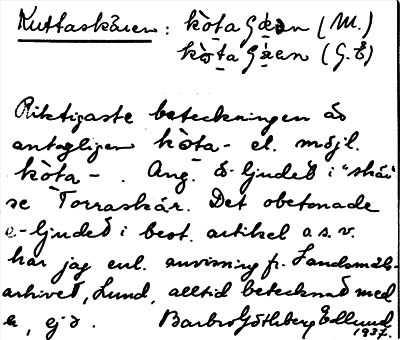 Kuttaskären: kòta Gæən (M.)
kòta Gäen (G.E)
Riktigaste beteckningen är
antagligen kòta- el. möjl.
kòta-. Ang. ä-ljudet i "skär"
se Torraskär. Det obetonade
e-ljudet i best. artikel o.s.v.
har jag enl. anvisning fr. Landsmåls-
arkivet, Lund, alltid betecknat med
e, ej ə. Barbro Göthberg Edlund
1937.